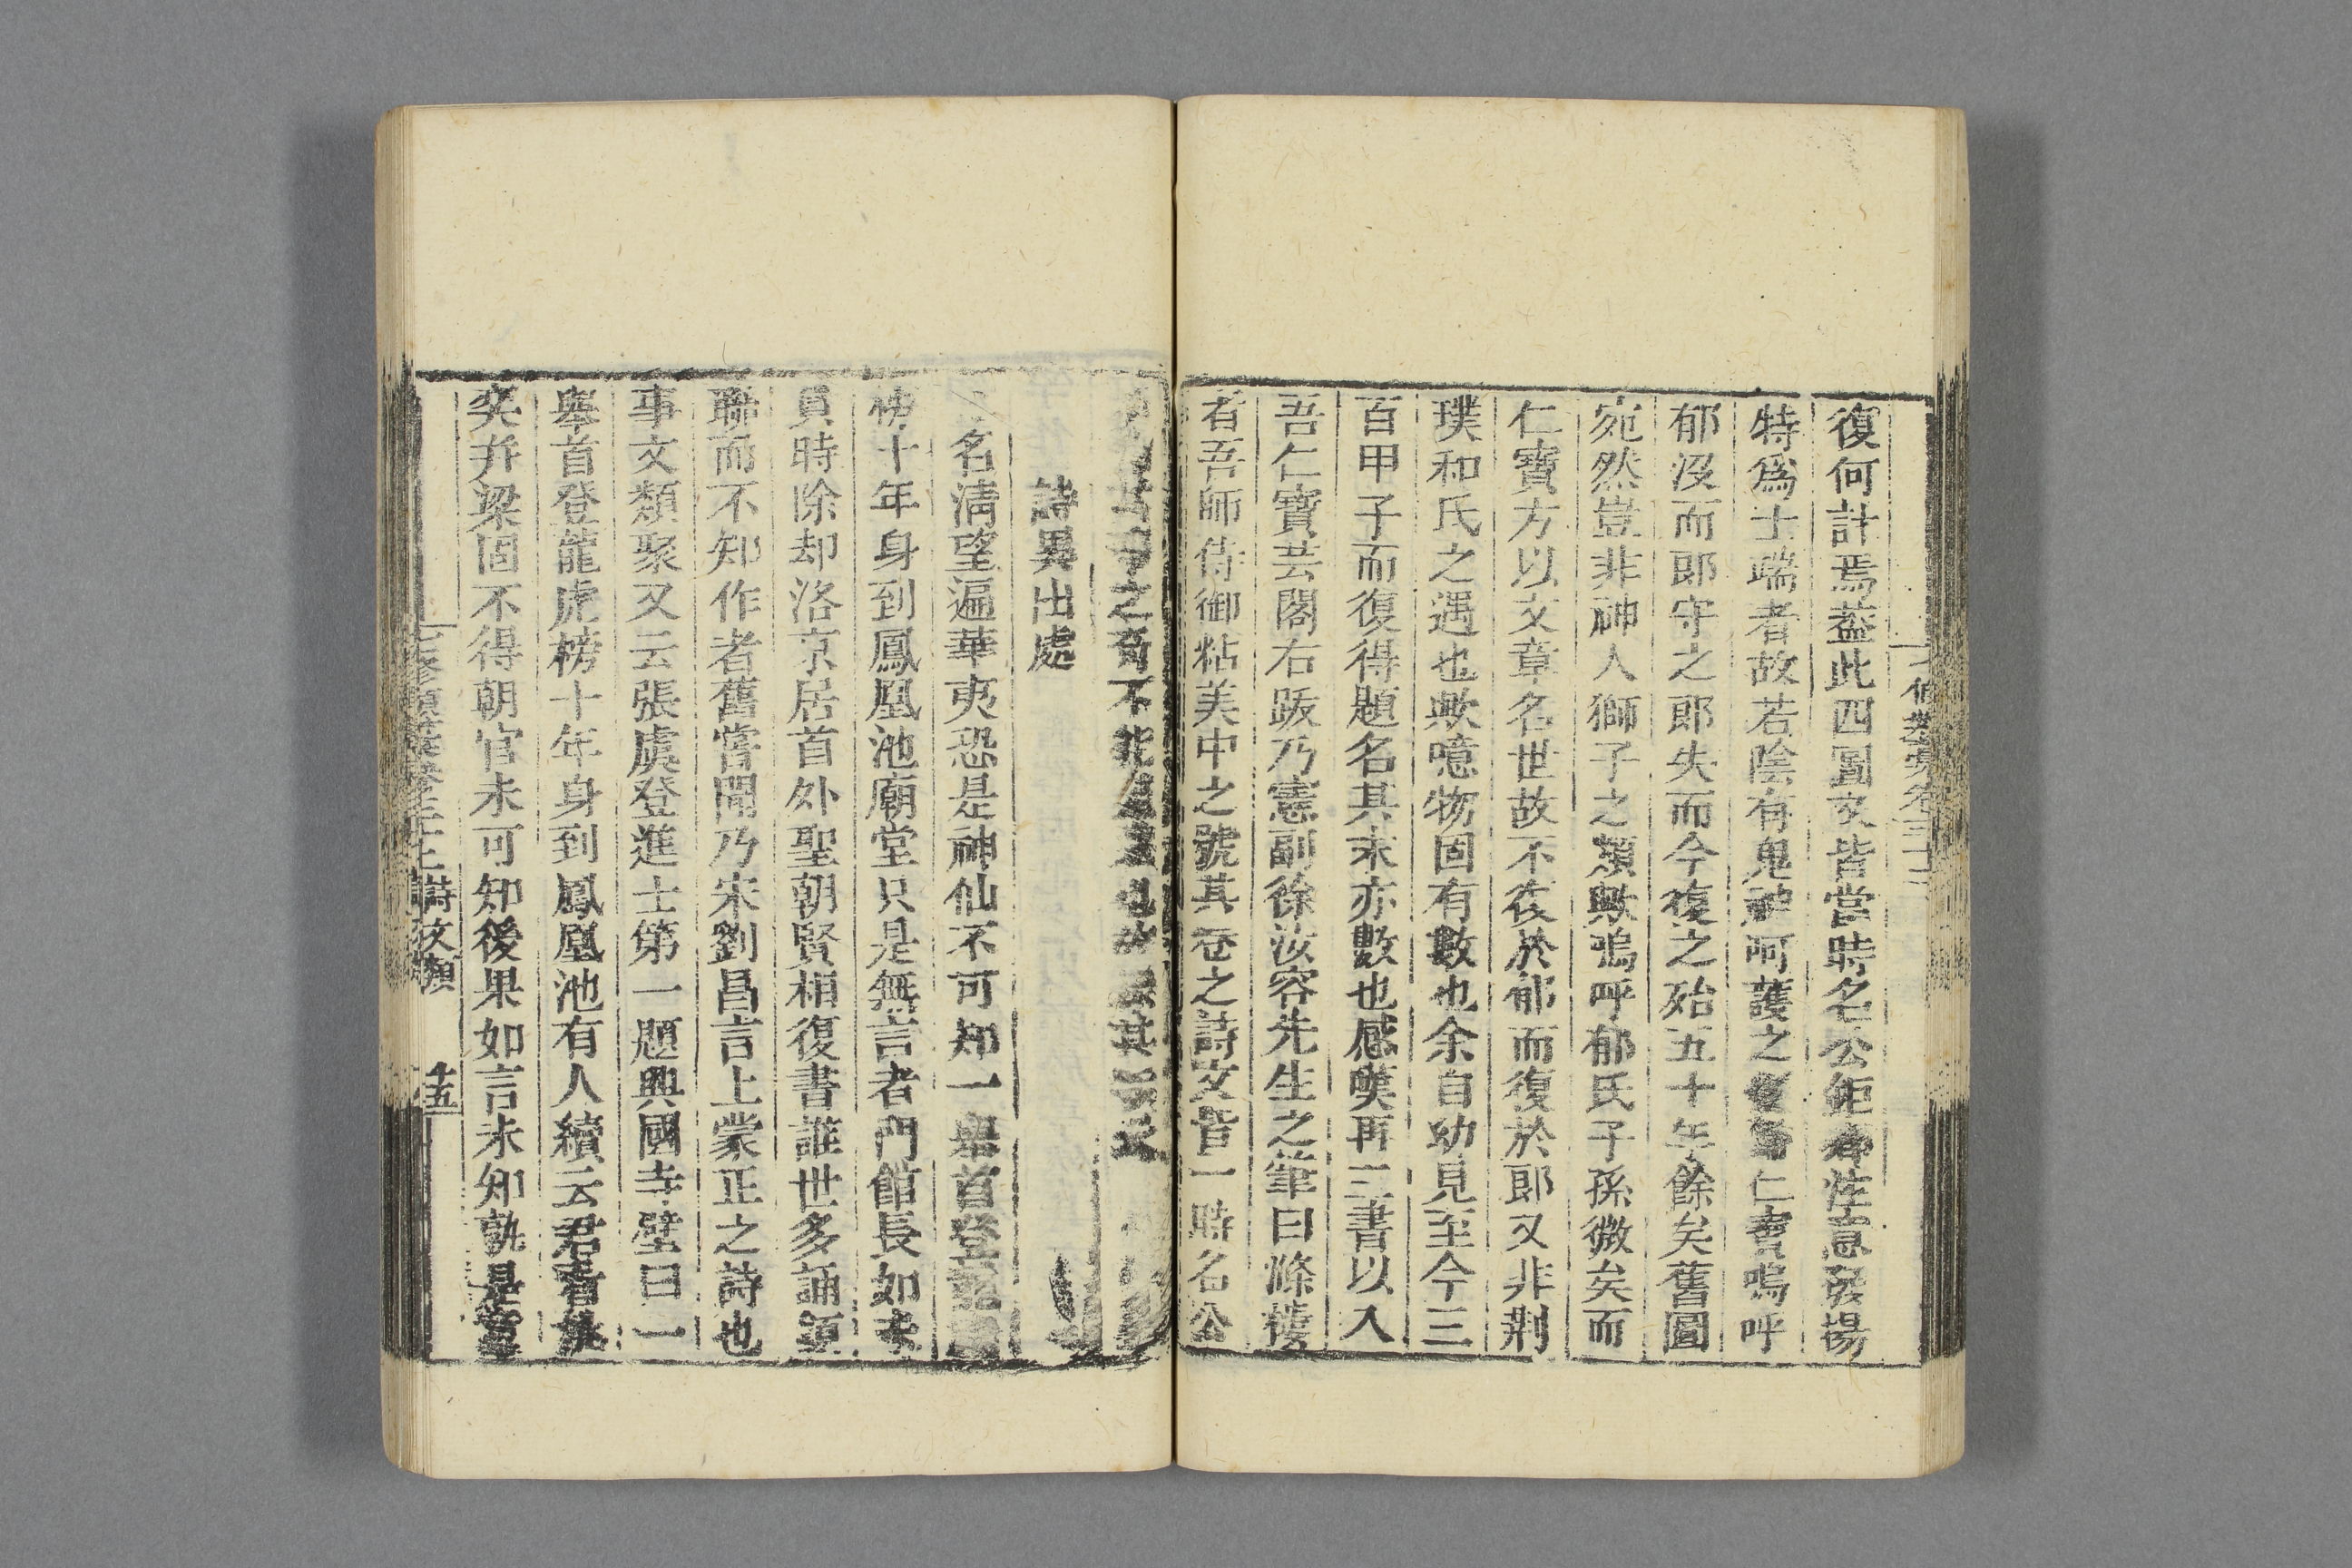 復何計焉葢此四圖文皆當時名公鉅卿注意發揚
特爲士端者故若陰有鬼神呵護之仁寶嗚呼
郁沒而郎守之郎失而今復之殆五十年餘矣舊圖
宛然豈非神人獅子之類歟嗚呼郁氏子孫微矣而
仁寶方以文章名世故不復於郁而復於郎又非荆
璞和氏之遇也歟噫物固有數也余自幼見至今三
百甲子而復得題名其末亦數也感嘆再三書以入
吾仁寶芸閣右跋乃憲副徐汝容先生之筆曰滌樓
者吾師侍御粘美中之號其卷之詩文皆一時名公
之不能也其
詩異出處
名淸望遍華夷恐是神仙不可知一舉首登
榜十年身到鳳凰池廟堂只是無言者門館長如未
貟時除却洛京居首外聖朝賢相復書誰世多誦頭
聯而不知作者舊嘗聞乃宋劉昌言上蒙正之詩也
事文類聚又云張虞登進士第一題興國寺壁曰一
舉首登龍虎榜十年身到鳳凰池有人續云君看姚
奕幷梁固不得朝官未可知後果如言未知孰是
七修類藁卷三十 詩文類 十五